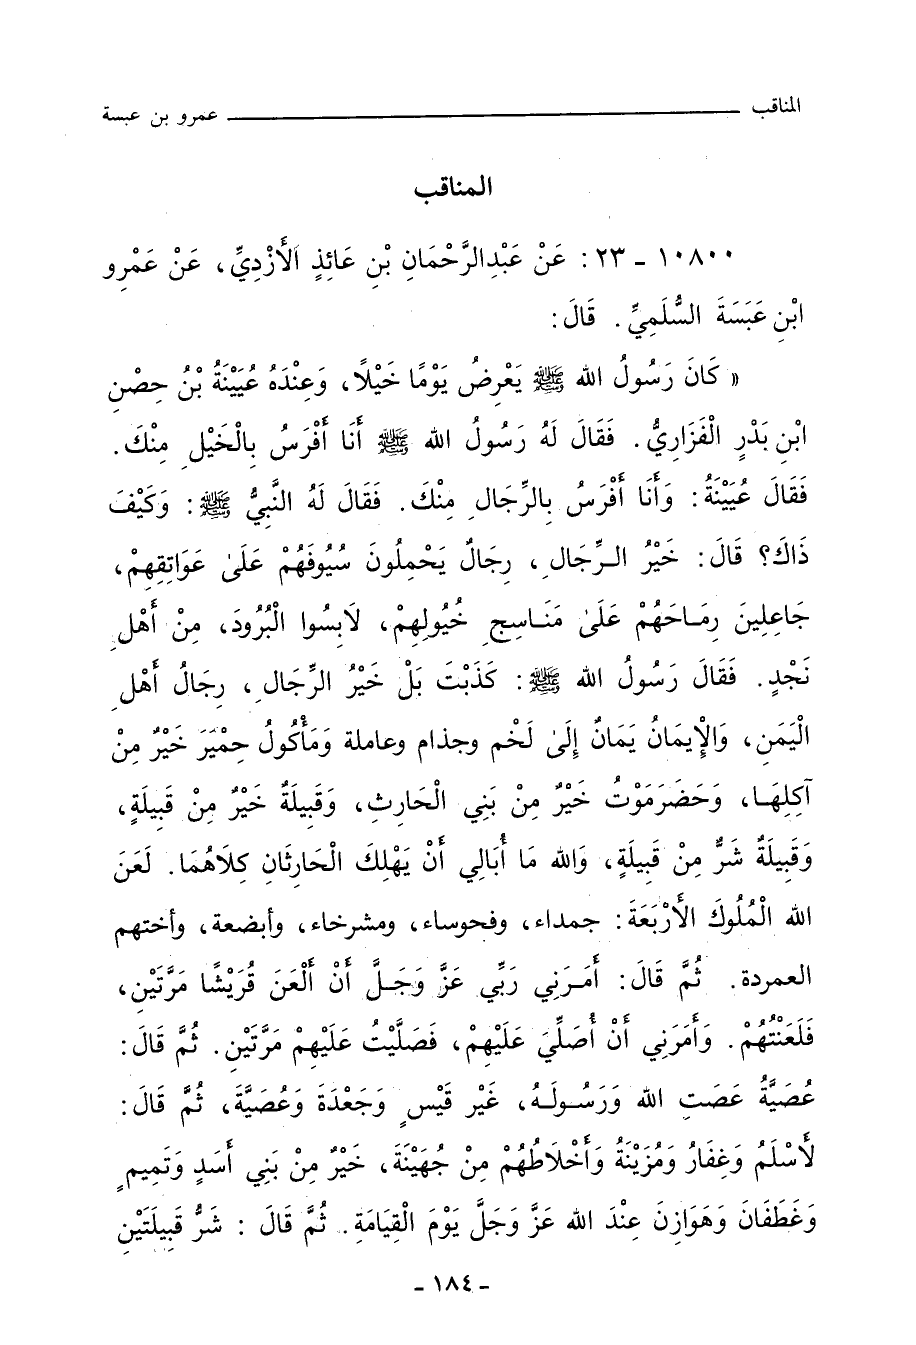 المناقب ــــــــ عمرو بن عبسة
المناقب
١٠٨٠٠ - ٢٣ : عَنْ عَبْدِالرَّحْمَانِ بْنِ عَائِذٍ الْأَزْدِيِّ، عَنْ عَمْرِو
ابْنِ عَبَسَةَ السُّلَمِيِّ. قَالَ:
« كَانَ رَسُولُ الله ﷺ يَعْرِضُ يَوْمًا خَيْلًا، وَعِنْدَهُ عُيَيْنَةُ بْنُ حِصْنِ
ابْنِ بَدْرٍ الْفَزَارِيُّ. فَقَالَ لَهُ رَسُولُ الله ﷺ أَنَا أَفْرَسُ بِالْخَيْلِ مِنْكَ.
فَقَالَ عُيَيْنَةُ: وَأَنَا أَفْرَسُ بِالرِّجَالِ مِنْكَ. فَقَالَ لَهُ النَّبِيُّ ﷺ: وَكَيْفَ
ذَاكَ؟ قَالَ: خَيْرُ الرِّجَالِ، رِجَالٌ يَحْمِلُونَ سُيُوفَهُمْ عَلَىٰ عَوَاتِقِهِمْ،
جَاعِلِينَ رِمَاحَهُمْ عَلَىٰ مَنَاسِجِ خُيُولِهِمْ، لَابِسُوا الْبُرُودَ، مِنْ أَهْلِ
نَجْدٍ. فَقَالَ رَسُولُ الله ﷺ: كَذَبْتَ بَلْ خَيْرُ الرِّجَالِ، رِجَالُ أَهْلِ
الْيَمَنِ، وَالْإِيمَانُ يَمَانٌ إِلَىٰ لَخْم وجذام وعاملة وَمَأْكُولُ حِمْيَرَ خَيْرٌ مِنْ
آكِلِهَا، وَحَضْرَمَوْتُ خَيْرٌ مِنْ بَنِي الْحَارِثِ، وَقَبِيلَةٌ خَيْرٌ مِنْ قَبِيلَةٍ،
وَقَبِيلَةٌ شَرٌّ مِنْ قَبِيلَةٍ، وَالله مَا أُبَالِي أَنْ يَهْلِكَ الْحَارِثَانِ كِلَاهُمَا. لَعَنَ
الله الْمُلُوكَ الْأَرْبَعَةَ: جمداء، وفحوساء، ومشرخاء، وأبضعة، وأختهم
العمردة. ثُمَّ قَالَ: أَمَرَنِي رَبِّي عَزَّ وَجَلَّ أَنْ أَلْعَنَ قُرَيْشًا مَرَّتَيْنِ،
فَلَعَنْتُهُمْ. وَأَمَرَنِي أَنْ أُصَلِّيَ عَلَيْهِمْ، فَصَلَّيْتُ عَلَيْهِمْ مَرَّتَيْنِ. ثُمَّ قَالَ:
عُصَيَّةُ عَصَتِ الله وَرَسُولَهُ، غَيْر قَيْسٍ وَجَعْدَةَ وَعُصَيَّةَ، ثُمَّ قَالَ:
لَأَسْلَمُ وَغِفَارُ وَمُزَيْنَةُ وَأَخْلَاطُهُمْ مِنْ جُهَيْنَةَ، خَيْرٌ مِنْ بَنِي أَسَدٍ وَتَمِيمٍ
وَغَطَفَانَ وَهَوَازِنَ عِنْدَ الله عَزَّ وَجَلَّ يَوْمَ الْقِيَامَةِ. ثُمَّ قَالَ : شَرُّ قَبِيلَتَيْنِ
- ١٨٤ -